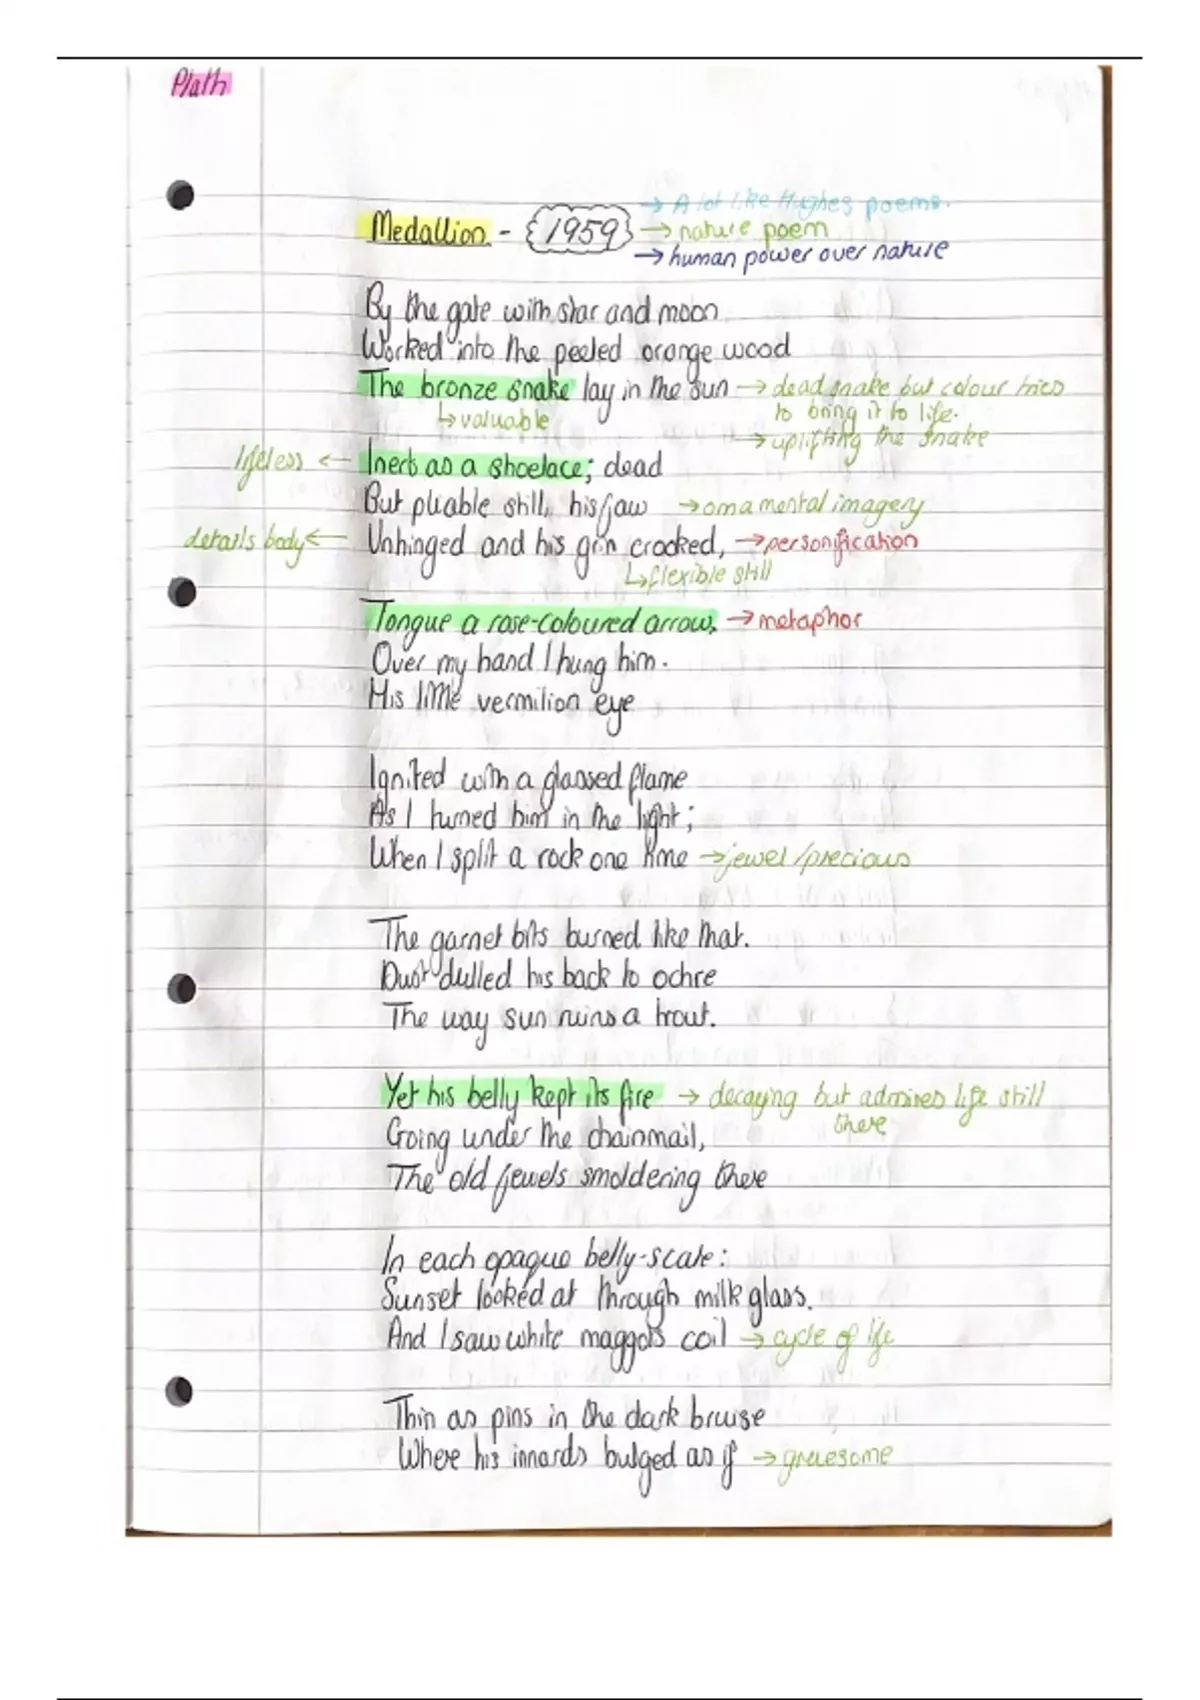 Plath
→ A lot like Hughes poems.
Medallion - 1959 → nature poem
→ human power over nature
By the gate with star and moon
Worked into the peeled orange wood
The bronze snake lay in the sun → dead snake but colour tries
↳ valuable to bring it to life.
→ uplifting the snake
lifeless ← Inert as a shoelace; dead
But pliable still, his jaw → ornamental imagery
details body ← Unhinged and his grin crooked, → personification
↳ flexible still
Tongue a rose-coloured arrow. → metaphor
Over my hand I hung him.
His little vermilion eye
Ignited with a glassed flame
As I turned him in the light;
When I split a rock one time → jewel/precious
The garnet bits burned like that.
Dust dulled his back to ochre
The way sun ruins a trout.
Yet his belly kept its fire → decaying but admires life still
there
Going under the chainmail,
The old jewels smoldering there
In each opaque belly-scale:
Sunset looked at through milk glass.
And I saw white maggots coil → cycle of life
Thin as pins in the dark bruise
Where his innards bulged as if → gruesome